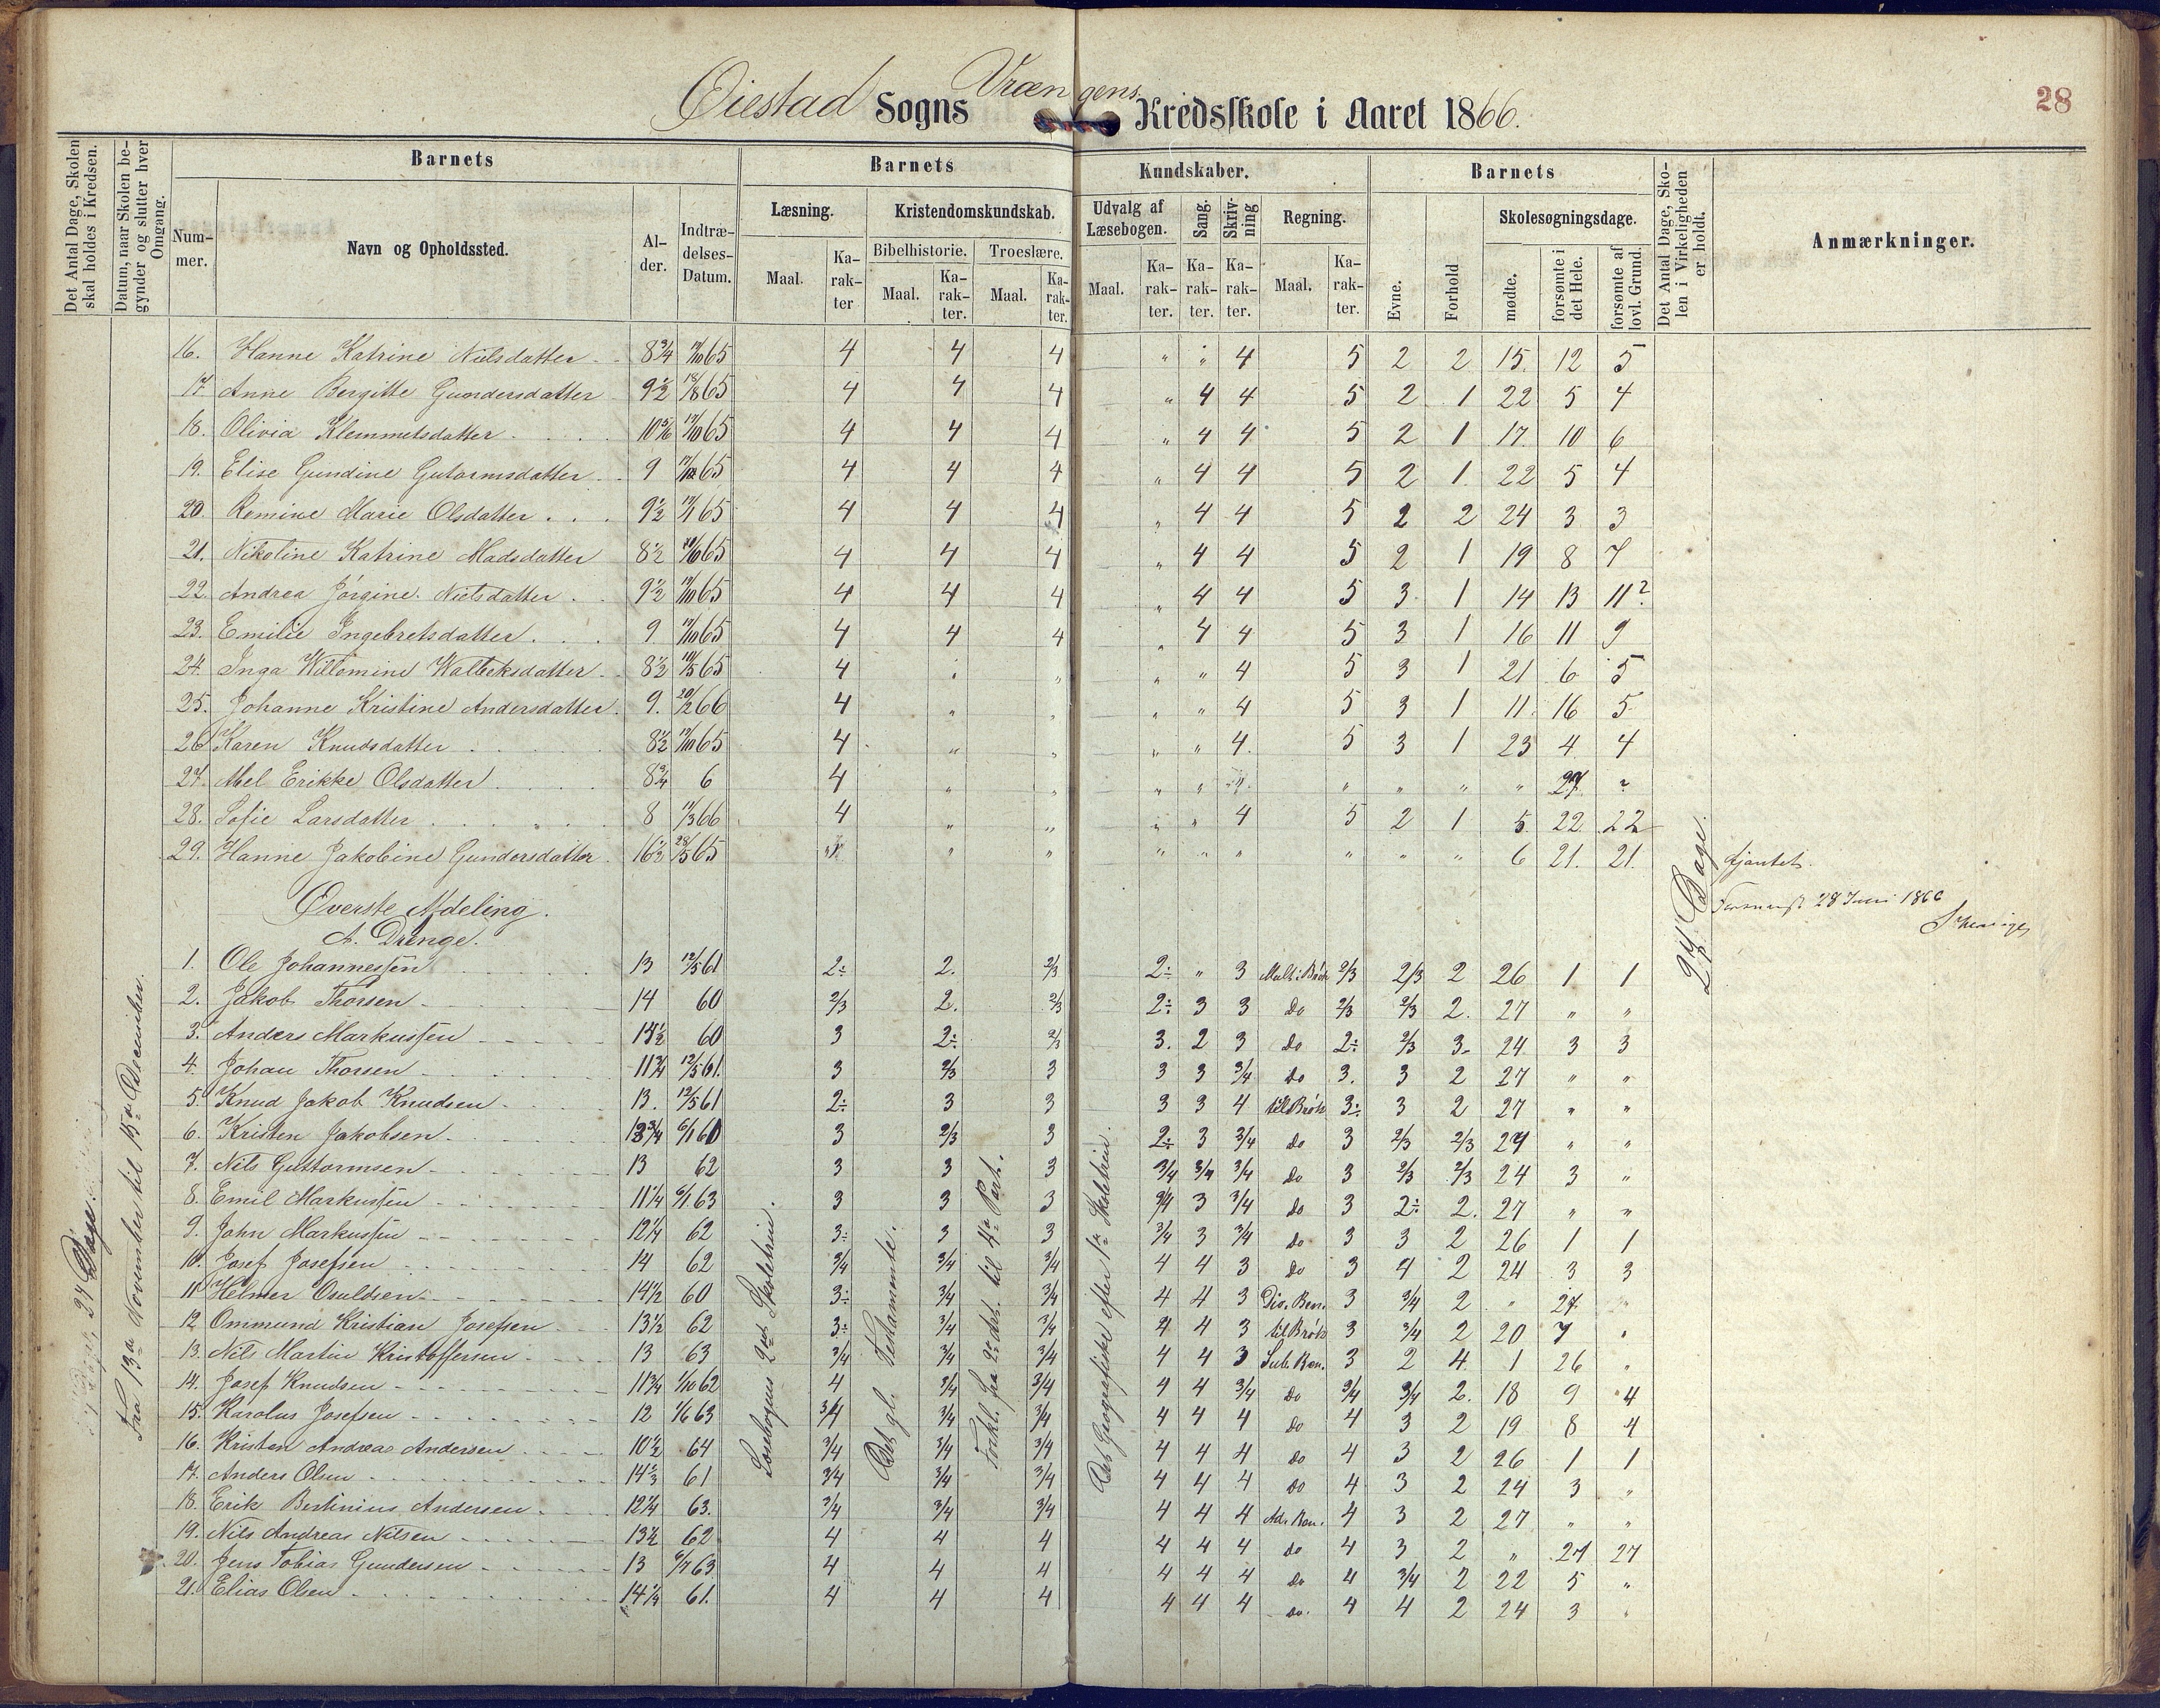 28
Øiestad Sogns Vrængens Kredsskole i Aaret 1866.
Det Antal Dage, Skolen skal holdes i Kredsen.
Datum, naar Skolen begynder og slutter hver Omgang.
Barnets
Nummer.
Navn og Opholdssted.
Alder.
Indtrædelses-Datum.
Barnets Kundskaber.
Læsning.
Maal.
Karakter
Kristendomskundskab.
Bibelhistorie.
Maal.
Karakter.
Troeslære.
Maal.
Karakter.
Udvalg af Læsebogen.
Maal.
Karakter.
Sang.
Karakter.
Skrivning
Karakter.
Regning.
Maal.
Karakter.
Barnets
Evne.
Forhold
Skolesøgningsdage.
mødte.
forsømte i det Hele.
forsømte af lovl. Grund.
Det Antal Dage, Skolen i Virkeligheden er holdt.
Anmærkninger.
16. Hanne Katrine Nielsdatter 8 3/4 17/10 65 4 4 4 " " 4 5 2 2 15. 12 5
17. Anne Bergitte Gundersdatter 9 1/2 18/8 65 4 4 4 " 4 4 5 2 1 22 5 4
18. Olivia Klemmetsdatter 10 5/6 17/10 65 4 4 4 " 4 4 5 2 1 17. 10 6
19. Elise Gundine Gutormsdatter 9 17/10 65 4 4 4 " 4 4 5 2 1 22 5 4
20. Romine Marie Olsdatter 9 1/2 17/1 65 4 4 4 " 4 4 5 2 2 24 3 3
21. Nikoline Katrine Madsdatter 8 1/2 10/10 65 4 4 4 " 4 4 5 2 1 19 8 7
22. Andrea Jørgine Nielsdatter 9 1/2 17/10 65 4 4 4 " 4 4 5 3 1 14 13 11?
23. Emilie Ingebretsdatter 9 17/10 65 4 4 4 " 4 4 5 3 1 16 11 9
24. Inga Willomine Walbeksdatter 8 1/2 18/5 65 4 " " " " 4 5 3 1 21 6 5
25. Johanne Kristine Andersdatter 9. 20/2 66 4 " " " " 4 5 3 1 11. 16 5
26. Karen Knudsdatter 8 1/2 17/10 65 4 " " " " 4. 5 3 1 23 4 4
27. Abel Erikke Olsdatter 8 3/4 6 4 " " " " " " " " " 27. ?
28. Sofie Larsdatter 8 17/3 66 4 " " " " 4 5 2 1 5. 22 22
29. Hanne Jakobine Gundersdatter 16 1/2 28/5 65 " " " " " " " " " 6 21. 21.
27 Dage.
28 Juni 1866
Øverste Afdeling.
A. Drenge.
1. Ole Johannessen 13 12/5 61 2÷ 2. 2/3 2÷ " 3 Mult: Brøk 2/3 2/3 2 26 1 1
2. Jakob Thorsen 14 60 2/3 2. 2/3 2÷ 3 3 do 2/3 2/3 2. 27 " "
3. Anders Markussen 13 1/2 60 3 2÷ 2/3 3. 2 3 do 2÷ 2/3 3. 24 3 3
4. Johan Thorsen 11 3/4 12/5 61. 3 2/3 3 3 3 3/4 do 3. 3 2 27 " "
5. Knud Jakob Knudsen 13. 12/5 61 2÷ 3 3 3 3 4 til Brøk 3÷ 3 2 27 " "
6. Kristen Jakobsen 13 3/4 6/1 60 3 2/3 3 2÷ 3 3/4 do 3 2/3 2/3 27 " "
7. Nils Guttormsen 13 62 3 3 3 3/4 3/4 3/4 do 3 2/3 2/3 24 3 "
8. Emil Markussen 11 1/4 6/1 63 3 3 3 3/4 3 3/4 do 3 2÷ 2. 27 " "
9. John Markussen 12 1/4 62 3÷ 3 3 3/4 3 3/4 do 3 3 2 26 1 1
10. Josef Josefsen 14 62 3/4 3/4 3/4 4 4 3 do 3 4 2 24 3 3
11. Helmer Osuldsen 14 1/2 60 3÷ 3/4 3/4 4 4 3 Div. Ben. 3 3/4 2 " 27. "
12. Ommund Kristian Josefsen 13 1/2 62 3÷ 3/4 3/4 4 4 3 til Brøk 3 3/4 2 20 7 "
13. Nils Martin Kristoffersen 13 63 3/4 3/4 3/4 4 4 3 Sub. Ben. 3 2 4 1 26 "
14. Josef Knudsen 11 3/4 1/10 62 4 3/4 3/4 4 4 3/4 do 3/4 3/4 2. 18 9 4
15. Karolus Josefsen 12 1/6 63 3/4 3/4 3/4 4 4 4 do 4 3 2 19 8 4
16. Kristen Andreas Andersen 10 1/2 64 3/4 3/4 3/4 4 4 4 do 4 3 2 26 1 1
17. Anders Olsen 14 1/3 61 3/4 3/4 3/4 4 4 4 do 4 3 2 24 3 "
18. Erik Bertinius Andersen 12 1/4 63. 3/4 3/4 3/4 4 4 4 Ad. Ben. 4 3 2 27 " "
19. Nils Andreas Nilsen 13 1/2 62 4 4 4 4 4 4 do 4 3 2 " 27 27
20. Jens Tobias Gundersen 13 6/7 63 4 4 4 4 4 4 do 4 3/4 2 22 5 "
21. Elias Olsen 14 1/4 61. 4 4 4 4 4 4 do. 4 4 2 24 3 "
27 Dage.
Fra 13de November til 15de December.
Læsebogens 2det Skoletrin.
Det gl. Testamente.
Forkl. fra 2den Art. til 4de Part.
Det Geografiske efter 1ste Skoletrin.